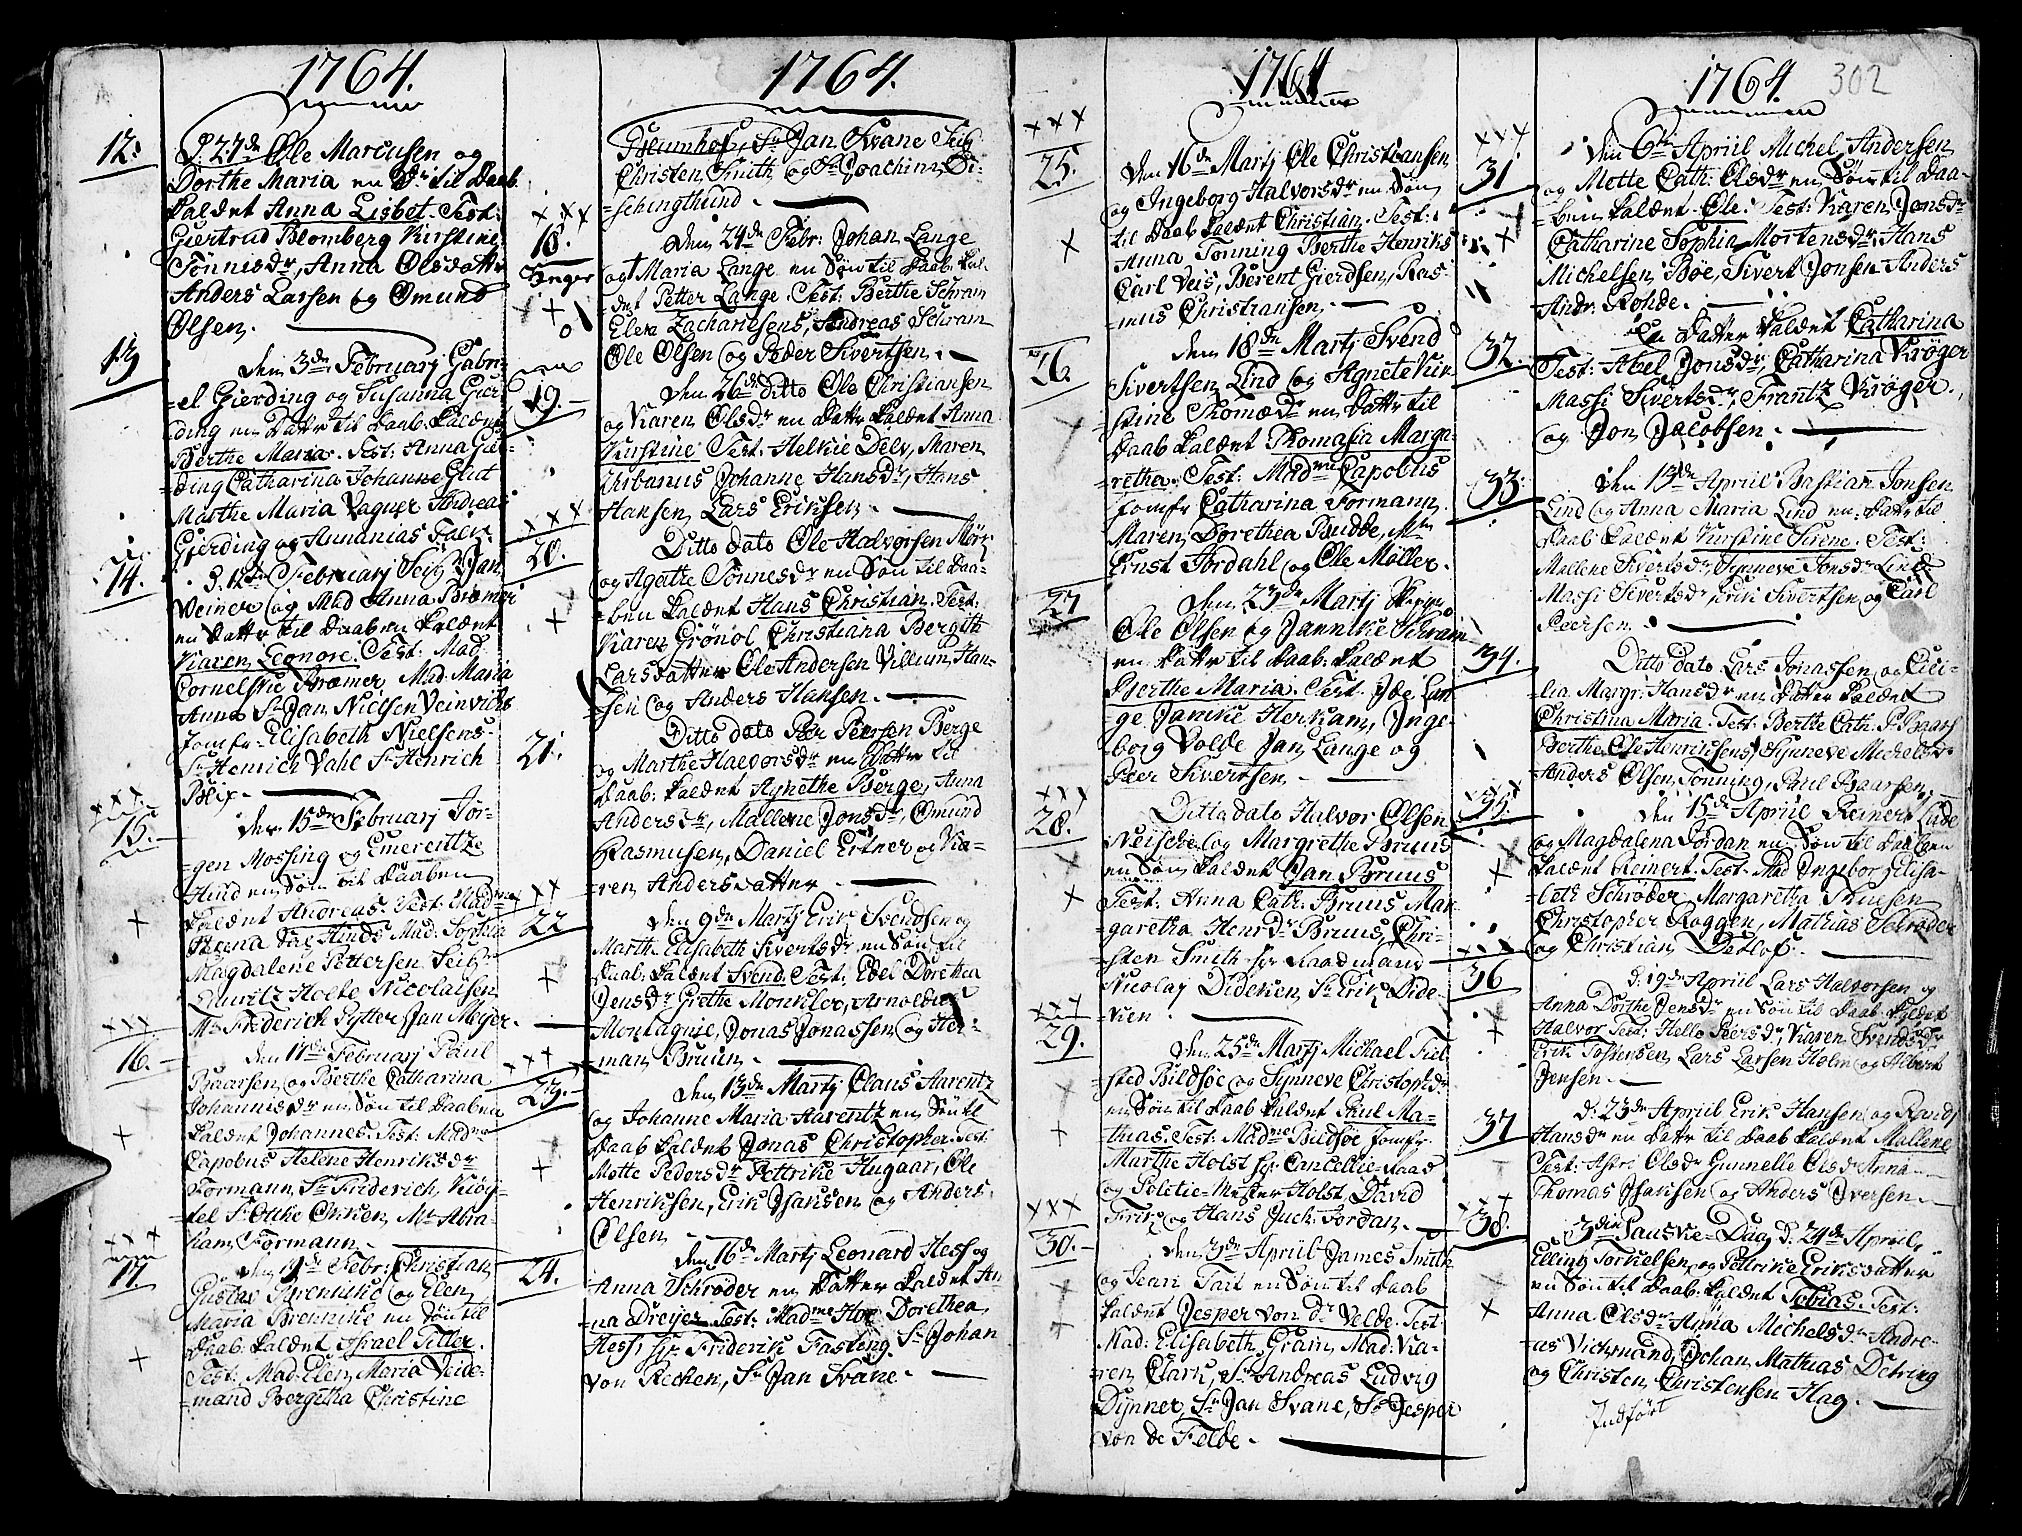 1764.
12.
D. 27de Ole Marcusen og
Dorthe Maria en Dr til Daab
kaldet Anna Lisbet. Test:
Giertrud Blomberg Kirstine
Tönnisdr, Anna Olsdatter
Anders Larsen og Omund
Olsen.
13
Den 3de February Gabri-
el Gierding og Susanna Gier
ding en Datter til Daab kaldet
Berthe Maria. Test: Anna Gier
ding Catharina Johanne Glut
Marthe Maria Vagner Andreas
Gierding og Annanias Falk
14.
D. 12te February Jan
Veiner og Mad Anna Bræmer
en Datter til Daaben kaldet
Karen Leonore. Test: Mad.
Cornelskie Bræmer, Mad. Maria
Anna Sr Jan Nielsen Veinrichs
Jomfr. Elisabeth Nielsens
Sr Henrich Vahl Sr Henrich
Blix.
15.
Den 15de February Jör-
gen Mossing og Emerentze
Hind en Sön til Daaben
kaldet Andreas. Test: Madme
Stena Hinds Mad: Sophia
Magdalene Pettersen
Lauritz Holte Nicolaisen
Mr Friderich Pytter Jan Meyer
16.
Den 17de February Paul
Baarsen og Berthe Catharina
Johannisdr en Sön til Daaben
kaldet Johannes. Test: Madme
Capobus Helene Henrichsdr
Formann, Sr Friderich Kröy-
tel Sr Otthe Mr Abra-
ham Formann
17
Den Febr: Christian
Gustav Brennike og Elen
Maria Brennike en Sön til
Daab kaldet Israel Titler.
Test: Mad. Elen Maria Veide-
mand Bergitha Christine
1764.
Blumhof, Sr Jan Svane
Christen Smith og Sr Joachim Di-
schingthund
18.
Den 24de Febr: Johan Lange
og Maria Lange en Sön til Daab kal-
det Petter Lange. Test: Berthe Schram
Elen Zachariesens, Andreas Schram
Ole Olsen og Peder Sivertsen.
19.
Den 26de Ditto Ole Christiansen
og Karen Olsdr en Datter kaldet Anna
Kirstine Test: Helvie Delv, Maren
Urbanus Johanne Hansdr, Hans
Hansen, Lars Eriksen
20.
Ditto dato Ole Halvorsen Mörk
og Agathe Tönnesdr en Sön til Daa-
ben kaldet Hans Christian. Test:
Karen Grönol Christiana Bergith
Larsdatter Ole Andersen Villum Han-
sen og Anders Hansen.
21.
Ditto dato Peer Peersen Berge
og Marthe Halvorsdr en Datter til
Daab: kaldet Agnethe Berge, Anna
Andersdr, Mallene Jonsdr, Omund
Rasmusen, Daniel Ertner og Ka-
ren Andersdatter
22
Den 9de Martj Erik Svendsen og
Marth Elisabeth Sivertsdr en Sön til
Daab: kaldet Svend. Test: Edel Dorethea
Jensdr Grethe Monklev, Arnoldus
Montagnie, Jonas Jonassen og Her-
man Bruun
23.
Den 13de Martj Claus Aarentz
og Johanne Maria Aarentz en Sön til
Daab kaldet Jonas Christopher Test:
Mette Pedersdr Pettrike Hugaar, Ole
Henriksen, Erik Jansen og Anders
Olsen
24.
Den 16de Martj Leonard Hess og
Anna Schröder en Datter kaldet An
na Dreijer Test: Madme Hoe Dorethea
Hess, hr. Friderik Fasting, Sr Johan
von Rechen, Sr Jan Svane
1764
25.
Den 16de Martj Ole Christiansen
og Ingeborg Halvorsdr en Sön
til Daab kaldet Christian. Test:
Anna Tonning Berthe Henriks
Carl Veis, Berent Gierdsen, Ras
mus Christiansen
26.
Den 18de Martj Svend
Sivertsen Lind og Agnete Kir
stine Thomædr en Datter til
Daab kaldet Thomasia Marga-
rethe. Test: Madme Capobus
Jomfr Catharina Formann
Maren Dorethea Budde, Mr
Ernst Jordahl og Ole Møller.
27
Den 23de Martj
Ole Olsen og Jannike Schram
en Datter til Daab: kaldet
Berthe Maria. Test. Ide Lan
ge Janike Herkam, Inge
borg Volde Jan Lange og
Peer Sivertsen
28.
Ditto dato Halvor Olsen
Neische og Margrethe Bruus
en Sön kaldet Jan Bruus
Test: Anna Cath: Bruus Mar
garetha Henrdr Bruus, Chri-
sten Smith hr Raadmand
Nicolay Dideken Sr Erik Dide-
kien
29.
Den 25de Martj Michael Fiel
sted Bildsöe og Synneve Christophdr
en Sön til Daab kaldet Paul Ma-
thias. Test: Madme Bildsöe Jomfr
Marthe Holst hr. Cancellie Raad
og Politie-Mester Holst David
Frik og Hans Juch. Jordan.
30.
Den 3de Apriil James Smith
og Jeari Tait en Sön til Daab
kaldet Jesper von dr Velde. Test
Mad: Elisabeth Gram, Mad: Ka-
ren Clark, Sr Andreas Ludvig
Dynner, Sr Jan Svane, Sr Jesper
von de Felde
1764. 302
31
Den 6te Apriil Michel Andersen
og Mette Cath: Olsdr en Sön til Daa-
ben kaldet Ole. Test: Karen Jonsdr
Catharine Sophia Mortensdr, Hans
Michelsen Böe, Sivert Jonsen Anders
Andr. Rohde.
32.
En Datter kaldet Catharina
Test: Abel Jonsdr, Catharina Kröger
Massi Sivertsdr, Frantz Kröger
og Jon Jacobsen
33.
Den 13de Apriil Bastian Jonsen
Lind og Anna Maria Lind en Datter til
Daab kaldet Kirstine Sirene. Test:
Mallene Sivertsdr Synneve Jonsdr Lind
Massi Sivertsdr Erik Sivertsen og Carl
Peersen
34.
Ditto dato Lars Jonassen og Cici-
lia Margr: Hansdr en Datter kaldet
Christina Maria. Test: Berthe Cath: P. Baars
Berthe Ole Henriksens, Synneve Michelsdr
Anders Olsen Tönning, Paul Baarsen
35.
Den 15de Apriil Reinert Lude
og Magdalena Jordan en Sön til Daaben
kaldet Reinert. Test. Mad Ingebor Elisa-
beth Schröder Margaretha Thuesen
Christopher Roggen, Mathias Schröder
og Christian Detlof
36
D. 19de Apriil Lars Halvorsen og
Anna Dorthe Jensdr en Sön til Daab kaldet
Halvor Test: Helle Peersdr, Karen Svendsdr
Erik Torkensen, Lars Larsen Holm og Albert
Jensen
37
D. 23de Apriil Erik Hansen og Randj
Hansdr en Datter til Daab kaldet Mallene
Test: Astri Olsdr Gunnelle Olsdr Anna
Thomas Isaksen og Anders Iversen
38.
3die Paaske-Dag D. 24de Apriil
Elling Torkelsen og Pettrike Eriksdatter
en Sön til Daab kaldet Tobias. Test:
Anna Olsdr Anna Michelsdr Andre-
as Vichmand, Johan Mathias Detring
og Christen Christensen Hag.
Indfört